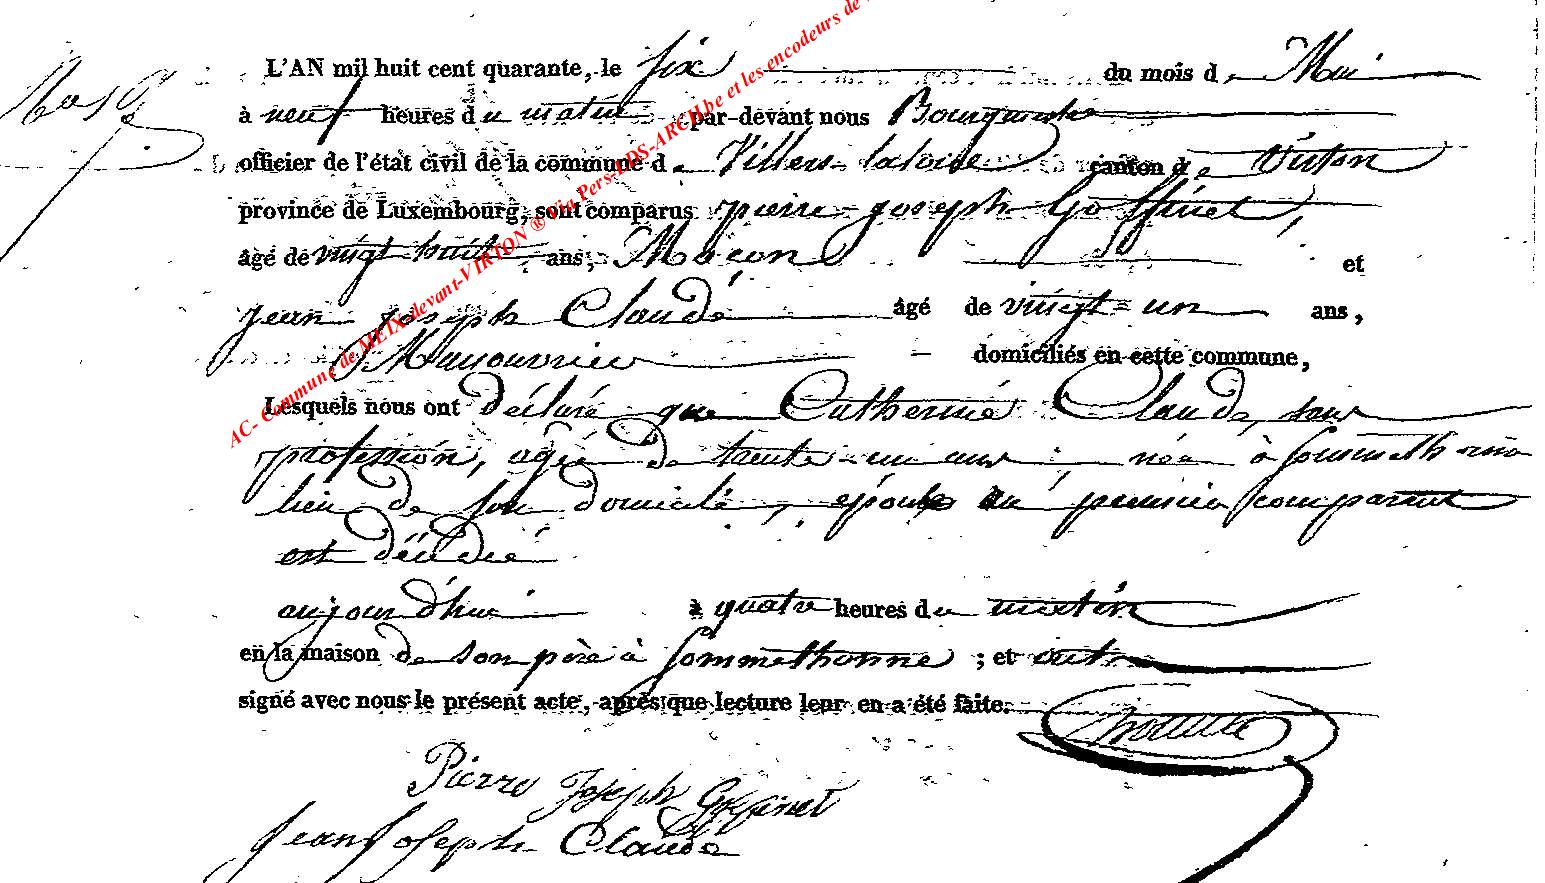 L'AN mil huit cent quarante, le six du mois de Mai
à neuf heures du matin par-devant nous Bourgmestre
officier de l'état civil de la commune de Villers-laloue canton de Virton
province de Luxembourg, sont comparus pierre-joseph Goffinet,
âgé de vingt huit ans, Maçon et
jean joseph Claude âgé de vingt-un ans,
Manouvrier domiciliés en cette commune,
Lesquels nous ont déclaré que Catherine Claude, sans
profession, agée de trente-un ans, née à Sommethonne
lieu de son domicile, épouse du premier comparant
est décédée
aujourd'hui à quatre heures du matin
en la maison de son père à Sommethonne ; et ont
signé avec nous le présent acte, après que lecture leur en a été faite.
Pierre Joseph Goffinet
Jean Joseph Claude
AC- Commune de MEIX-devant-VIRTON ® Via Pers-LDS-ARCH.be et les encodeurs de